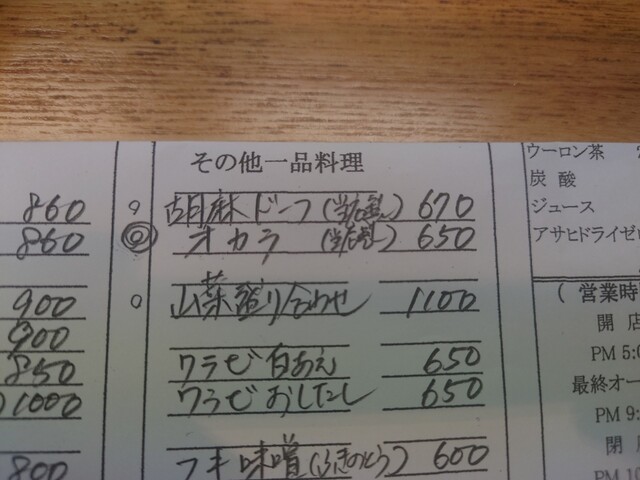 860
860
900
900
850
1000
800
その他一品料理
胡麻ドーフ 670
オカラ 650
山菜盛り合わせ 1100
ワラビ白あえ 650
ワラビおしたし 650
フキ味噌(ふきのとう) 600
ウーロン茶
炭酸
ジュース
アサヒドライゼロ
(営業時
開店
PM 5:0
最終オー
PM 9:
閉
PM 10